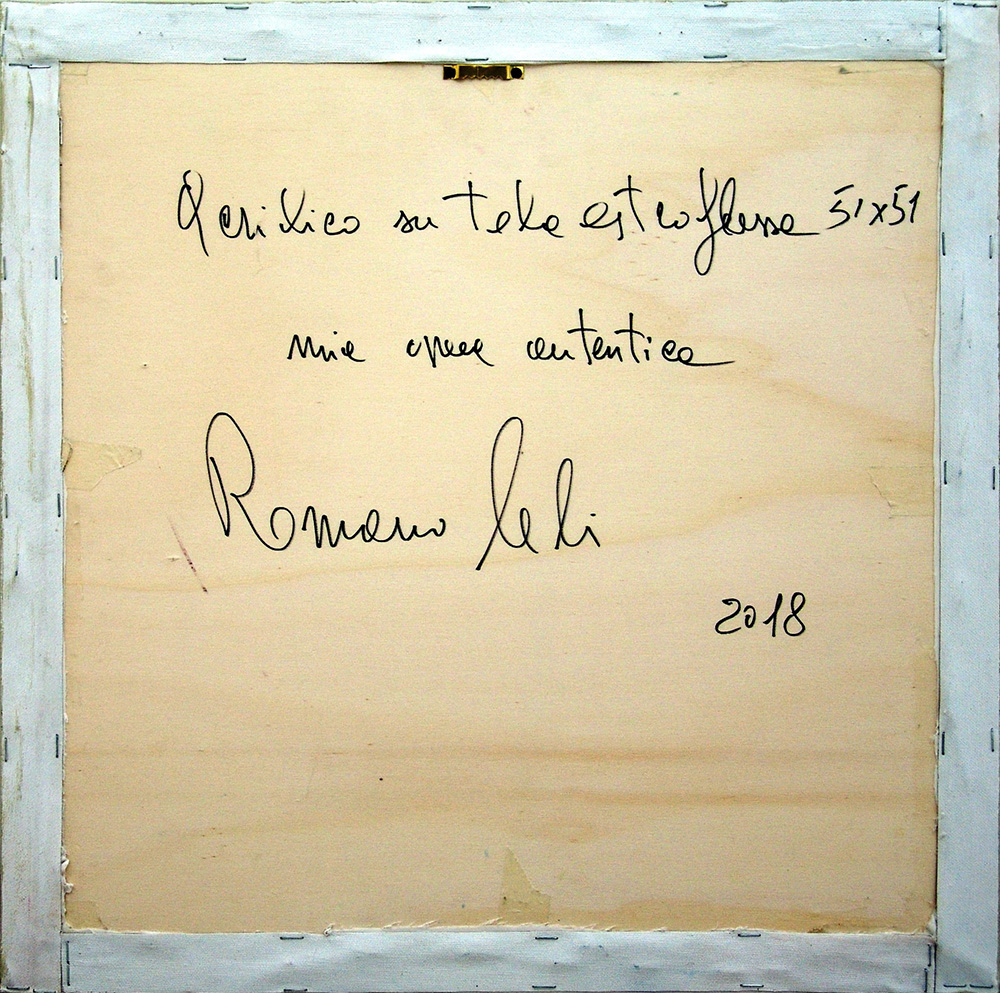 Acrilico su tela estroflessa 51x51
mia opera autentica
Romano Leli
2018